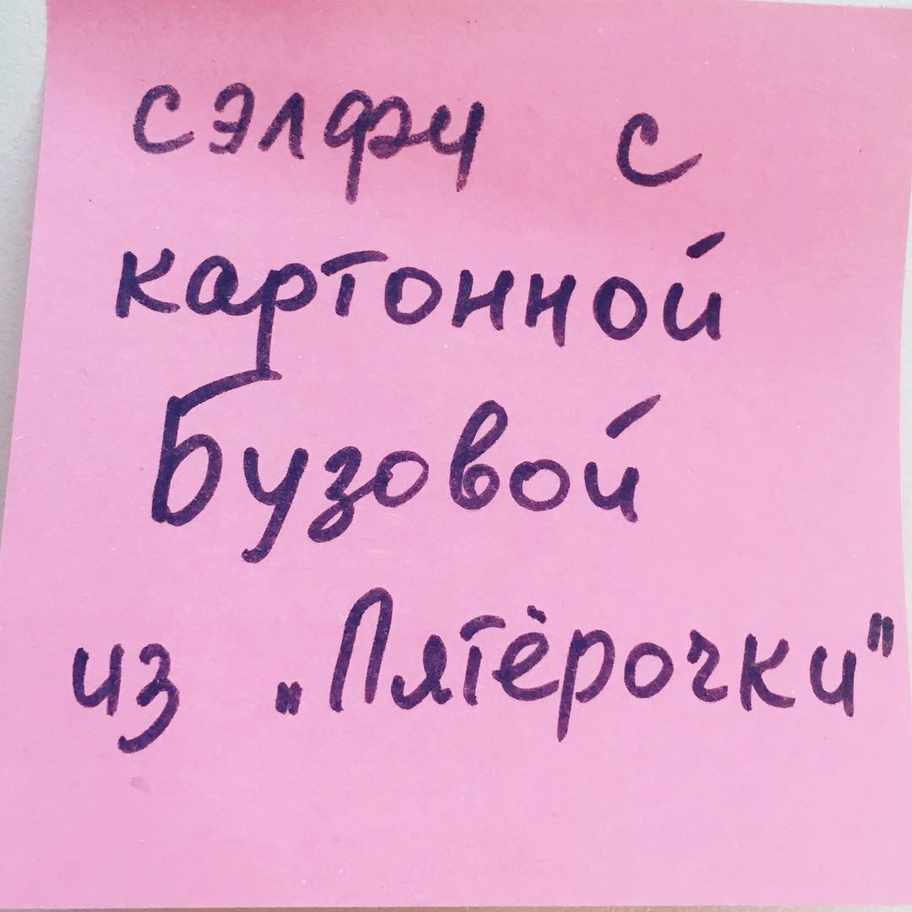 сэлфи с
картонной
Бузовой
из „Пятёрочки"